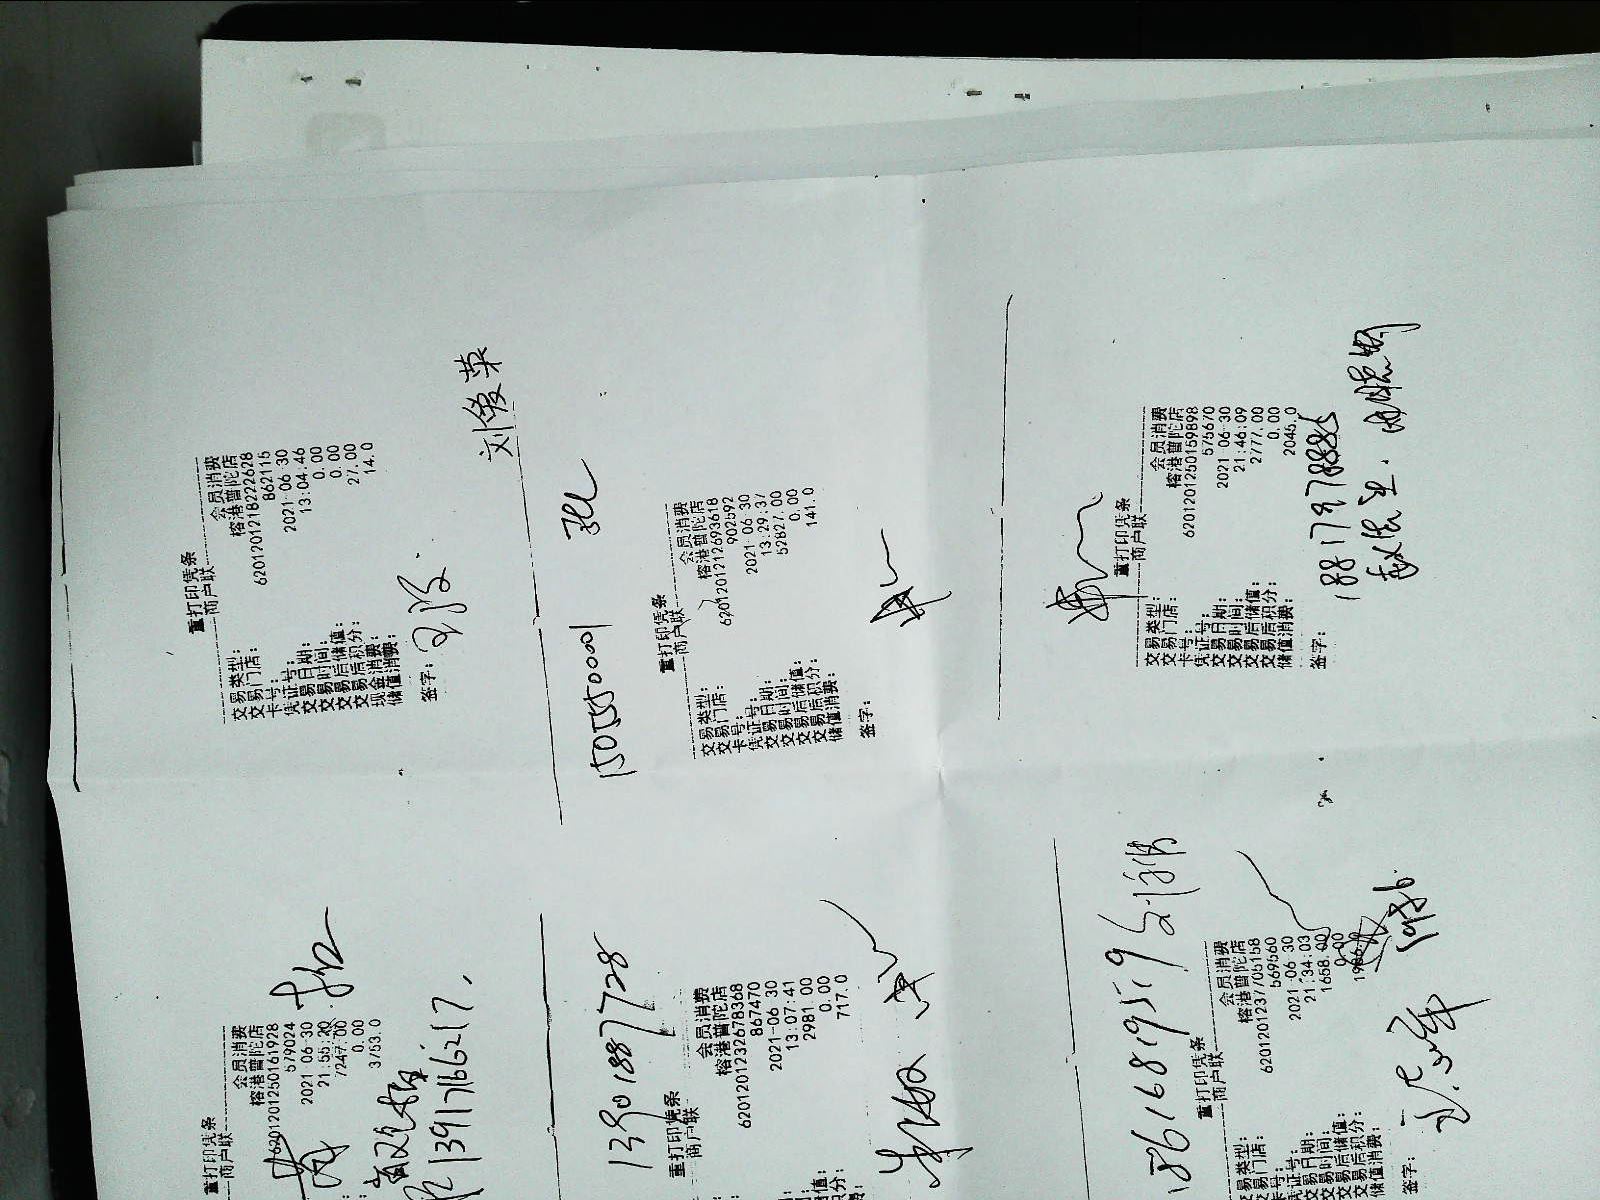 重打印凭条
商户联
交易类型： 会员消费
交易门店： 榕港普陀店
卡号： 6201201218222628
凭证号： 862115
交易日期： 2021-06-30
交易时间： 13:04:46
交易后储值： 0.00
交易后积分： 0.00
现金消费： 27.00
储值消费： 14.0
签字：
刘爱英
15055550001
重打印凭条
商户联
交易类型： 会员消费
交易门店： 榕港普陀店
卡号： 6201201212693618
凭证号： 902592
交易日期： 2021-06-30
交易时间： 13:29:37
交易后储值： 52827.00
交易后积分： 0.00
储值消费： 141.0
签字：
重打印凭条
商户联
交易类型： 会员消费
交易门店： 榕港普陀店
卡号： 6201201250159898
凭证号： 575670
交易日期： 2021-06-30
交易时间： 21:46:09
交易后储值： 2777.00
交易后积分： 0.00
储值消费： 2045.0
签字：
18817978885
重打印凭条
商户联
会员消费
榕港普陀店
6201201250161928
579024
2021-06-30
21:55:20
7247.00
0.00
3753.0
13917166217
13901887728
重打印凭条
商户联
会员消费
榕港普陀店
6201201232678368
867470
2021-06-30
13:07:41
储值： 2981.00
积分： 0.00
717.0
18616819579
重打印凭条
商户联
交易类型： 会员消费
交易门店： 榕港普陀店
卡号： 6201201237705158
凭证号： 569560
交易日期： 2021-06-30
交易时间： 21:34:03
交易后储值： 1658.00
交易后积分： 0.00
储值消费：
签字：